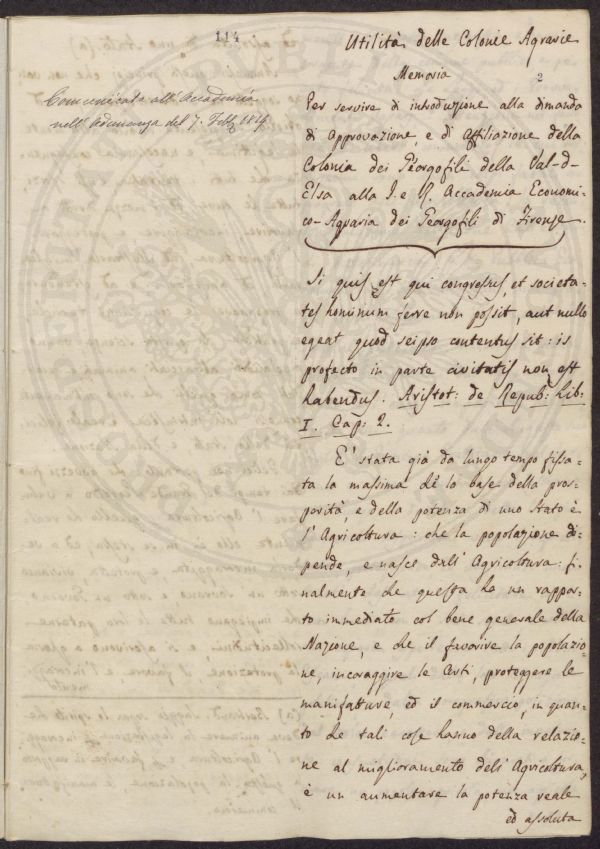 114
Utilità delle Colonie Agrarie
Memoria
2
Comunicata all'Accademia
nell'Adunanza del 7. Febb. 1819
Per servire di introduzione alla dimanda
di approvazione, e di affiliazione della
Colonia dei Georgofili della Val-d-
Elsa alla I. e R. Accademia Economi-
co-Agraria dei Georgofili di Firenze.
Si quis est qui congressus, et societa-
tes hominum ferre non possit, aut nullo
egeat quod seipso contentus sit: is
profecto in parte civitatis non est
habendus. Aristot: de Repub: Lib:
I. Cap: 2.
E' stata già da lungo tempo fissa-
ta la massima che la base della pros-
perità, e della potenza di uno stato è
l'Agricoltura: che la popolazione di-
pende, e nasce dall'Agricoltura: fi-
nalmente che questa ha un rappor-
to immediato col bene generale della
Nazione, e che il favorire la popolazio-
ne, incoraggire le Arti, proteggere le
manifatture, ed il commercio, in quan-
to che tali cose hanno della relazio-
ne al miglioramento dell'Agricoltura,
è un aumentare la potenza reale
ed assoluta